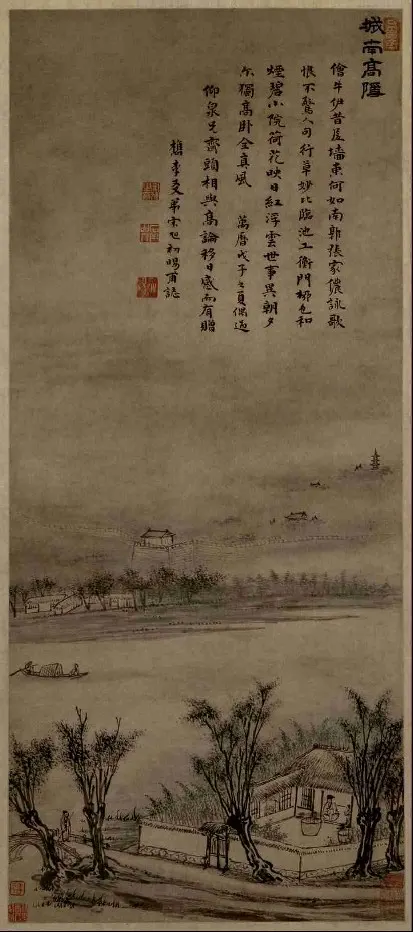 城南高隱
儈牛伊昔居墻東何如南郭張家儂詠歌
恨不驚人句行草妙比臨池工衡門柳色和
煙碧小院荷花映日紅浮雲世事異朝夕
尔獨高卧全真風 萬曆戊子之夏偶過
仰泉先齋頭相與高論移日感而有贈
檇李友弟宋旭初暘甫誌